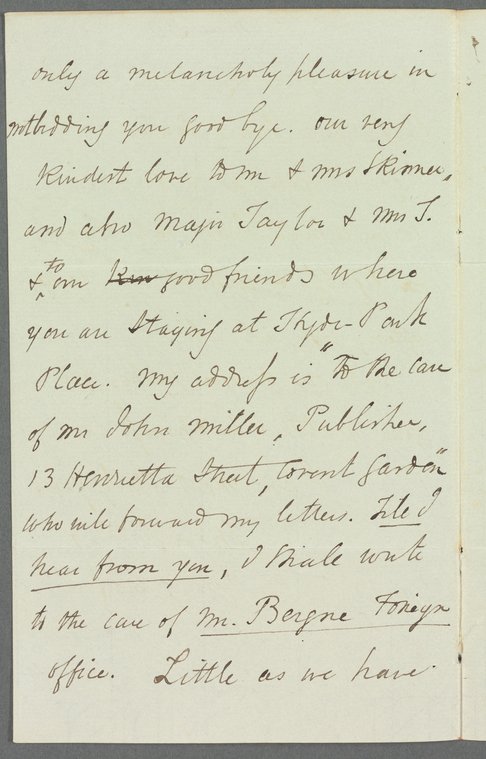 only a melancholy pleasure in
not bidding you good bye. our very
kindest love to Mr & Mrs Skinner,
and also Major Taylor & Mrs T.
& to our kin good friends where
you are Staying at Hyde-Park
Place. My address is "To the care
of Mr John Miller, Publisher,
13 Henrietta Street, Covent Garden"
who will forward my letters. Till I
hear from you, I shall write
to the care of Mr. Bergne Foreign
office. Little as we have